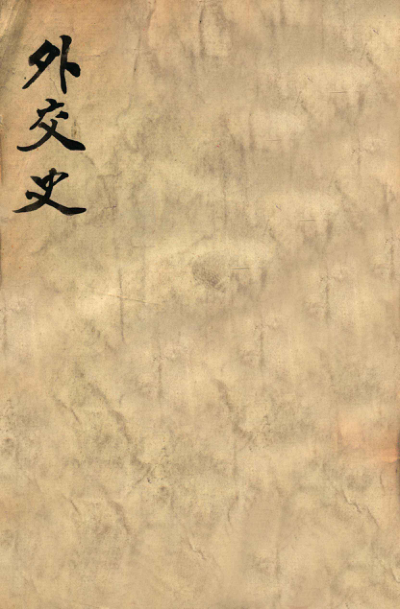 外交史